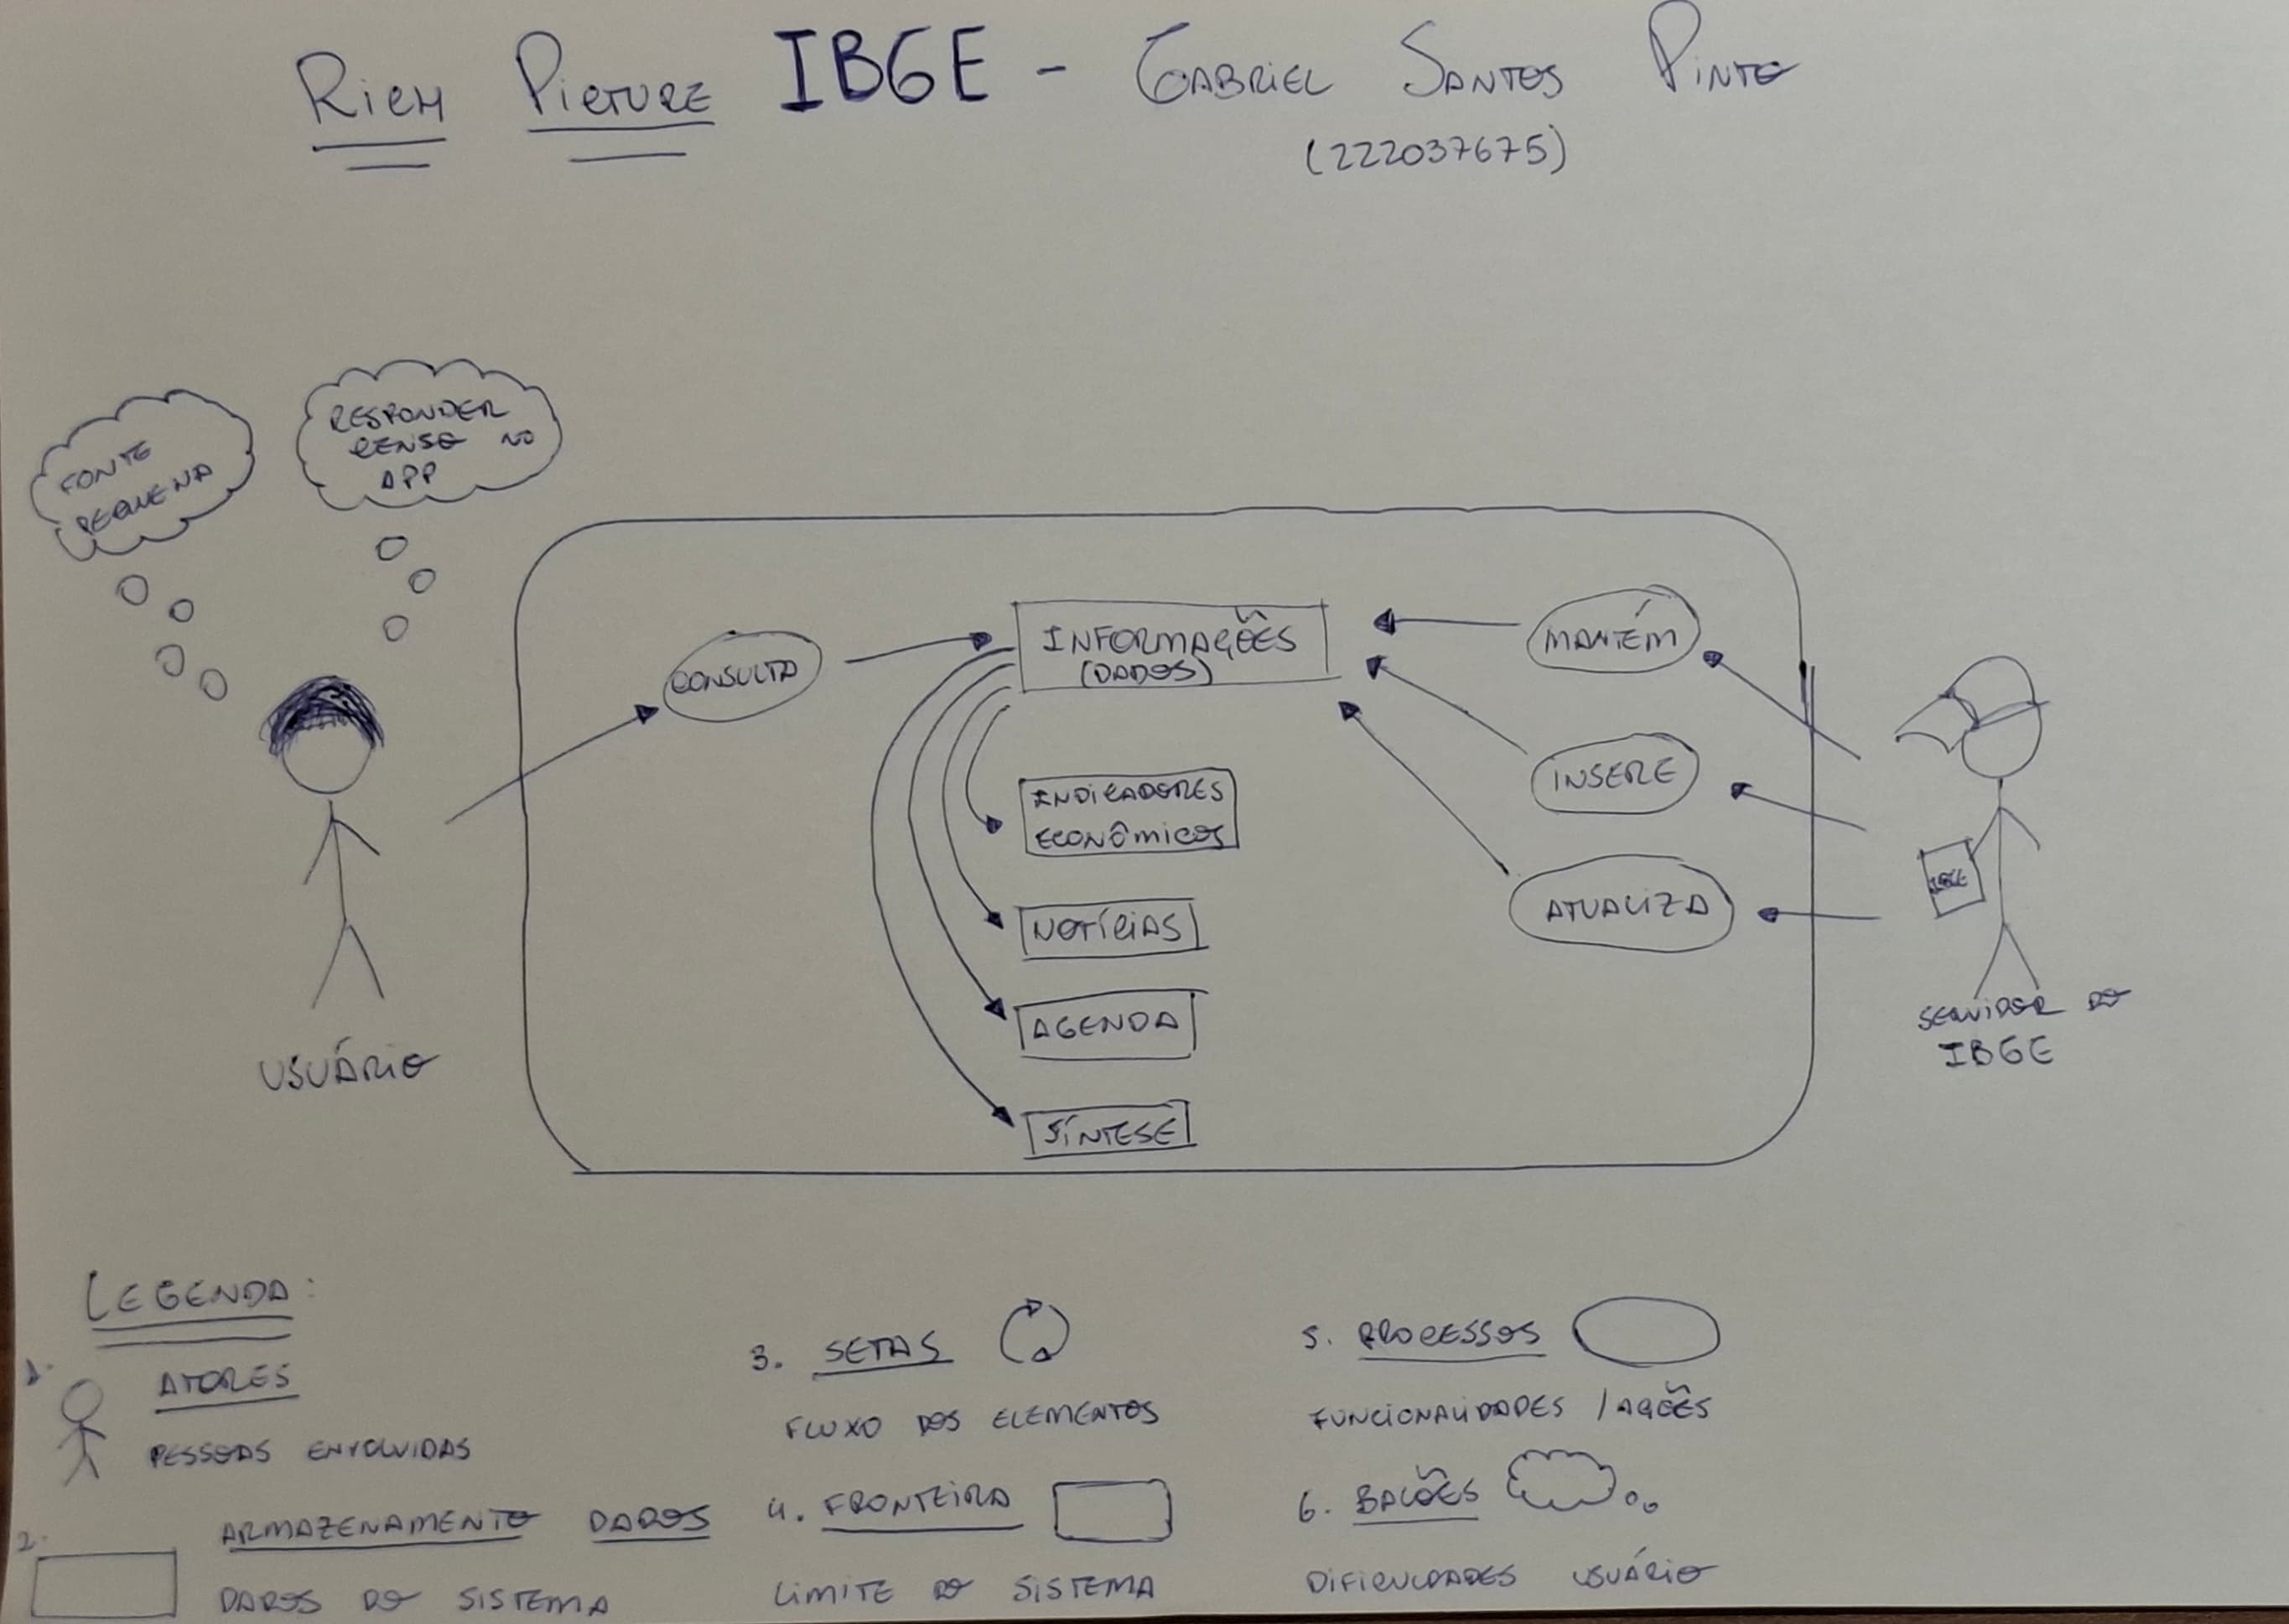 RICH PICTURE IBGE - GABRIEL SANTOS PINTO
(222037675)
FONTE
PEQUENA
RESPONDER
CENSO NO
APP
CONSULTA
INFORMAÇÕES
(DADOS)
INDICADORES
ECONÔMICOS
NOTÍCIAS
AGENDA
SÍNTESE
MANTÉM
INSERE
ATUALIZA
USUÁRIO
IBGE
SERVIDOR DO
IBGE
LEGENDA:
1. ATORES
PESSOAS ENVOLVIDAS
2. ARMAZENAMENTO DADOS
DADOS DO SISTEMA
3. SETAS
FLUXO DOS ELEMENTOS
4. FRONTEIRA
LIMITE DO SISTEMA
5. PROCESSOS
FUNCIONALIDADES / AÇÕES
6. BALÕES
DIFICULDADES USUÁRIO